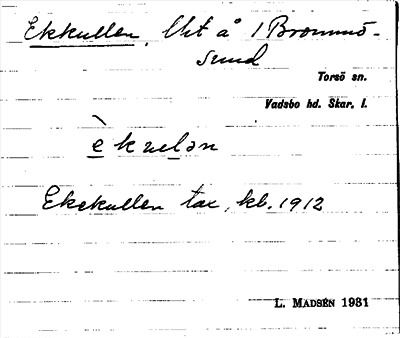 Ekkullen, lht å 1 Brommö-
sund
Torsö sn.
Vadsbo hd. Skar. l.
è k u l ə n
Ekekullen tax. kb. 1912
L. MADSÉN 1931